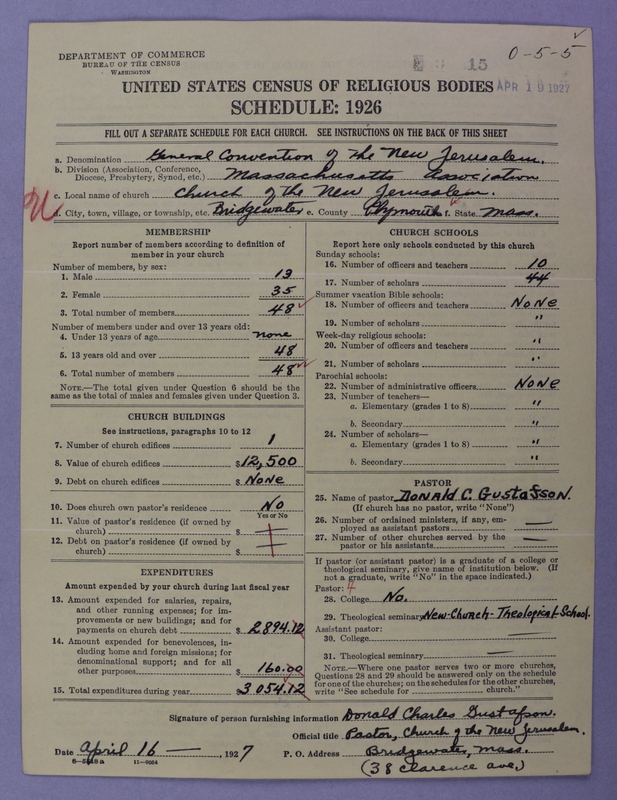 DEPARTMENT OF COMMERCE
BUREAU OF THE CENSUS
WASHINGTON
15
0-5-5
APR 19 1927
UNITED STATES CENSUS OF RELIGIOUS BODIES
SCHEDULE: 1926
FILL OUT A SEPARATE SCHEDULE FOR EACH CHURCH. SEE INSTRUCTIONS ON THE BACK OF THIS SHEET
a. Denomination General Convention of the New Jerusalem.
b. Division (Association, Conference, Diocese, Presbytery, Synod, etc.) Massachusetts Association
c. Local name of church Church of the New Jerusalem.
d. City, town, village, or township, etc. Bridgewater e. County Plymouth f. State Mass.
MEMBERSHIP
Report number of members according to definition of
member in your church
Number of members, by sex:
1. Male 13
2. Female 35
3. Total number of members 48
Number of members under and over 13 years old:
4. Under 13 years of age none
5. 13 years old and over 48
6. Total number of members 48
NOTE.—The total given under Question 6 should be the
same as the total of males and females given under Question 3.
CHURCH BUILDINGS
See instructions, paragraphs 10 to 12
7. Number of church edifices 1
8. Value of church edifices $12,500
9. Debt on church edifices $ None
10. Does church own pastor's residence No
Yes or No
11. Value of pastor's residence (if owned by
church) $ —
12. Debt on pastor's residence (if owned by
church) $ —
EXPENDITURES
Amount expended by your church during last fiscal year
13. Amount expended for salaries, repairs,
and other running expenses; for im-
provements or new buildings; and for
payments on church debt $ 2894.12
14. Amount expended for benevolences, in-
cluding home and foreign missions; for
denominational support; and for all
other purposes $ 160.00
15. Total expenditures during year $3054.12
CHURCH SCHOOLS
Report here only schools conducted by this church
Sunday schools:
16. Number of officers and teachers 10
17. Number of scholars 44
Summer vacation Bible schools:
18. Number of officers and teachers None
19. Number of scholars "
Week-day religious schools:
20. Number of officers and teachers "
21. Number of scholars "
Parochial schools:
22. Number of administrative officers None
23. Number of teachers—
a. Elementary (grades 1 to 8) "
b. Secondary "
24. Number of scholars—
a. Elementary (grades 1 to 8) "
b. Secondary "
PASTOR
25. Name of pastor Donald C. Gustafson.
(If church has no pastor, write "None")
26. Number of ordained ministers, if any, em-
ployed as assistant pastors —
27. Number of other churches served by the
pastor or his assistants —
If pastor (or assistant pastor) is a graduate of a college or
theological seminary, give name of institution below. (If
not a graduate, write "No" in the space indicated.)
Pastor:
28. College No.
29. Theological seminary New-Church Theological School.
Assistant pastor:
30. College —
31. Theological seminary —
NOTE.—Where one pastor serves two or more churches,
Questions 28 and 29 should be answered only on the schedule
for one of the churches; on the schedules for the other churches,
write "See schedule for church."
Signature of person furnishing information Donald Charles Gustafson.
Official title Pastor, Church of the New Jerusalem.
Date April 16 —, 1927 P. O. Address Bridgewater, Mass.
(38 Clarence ave.)
11—9084